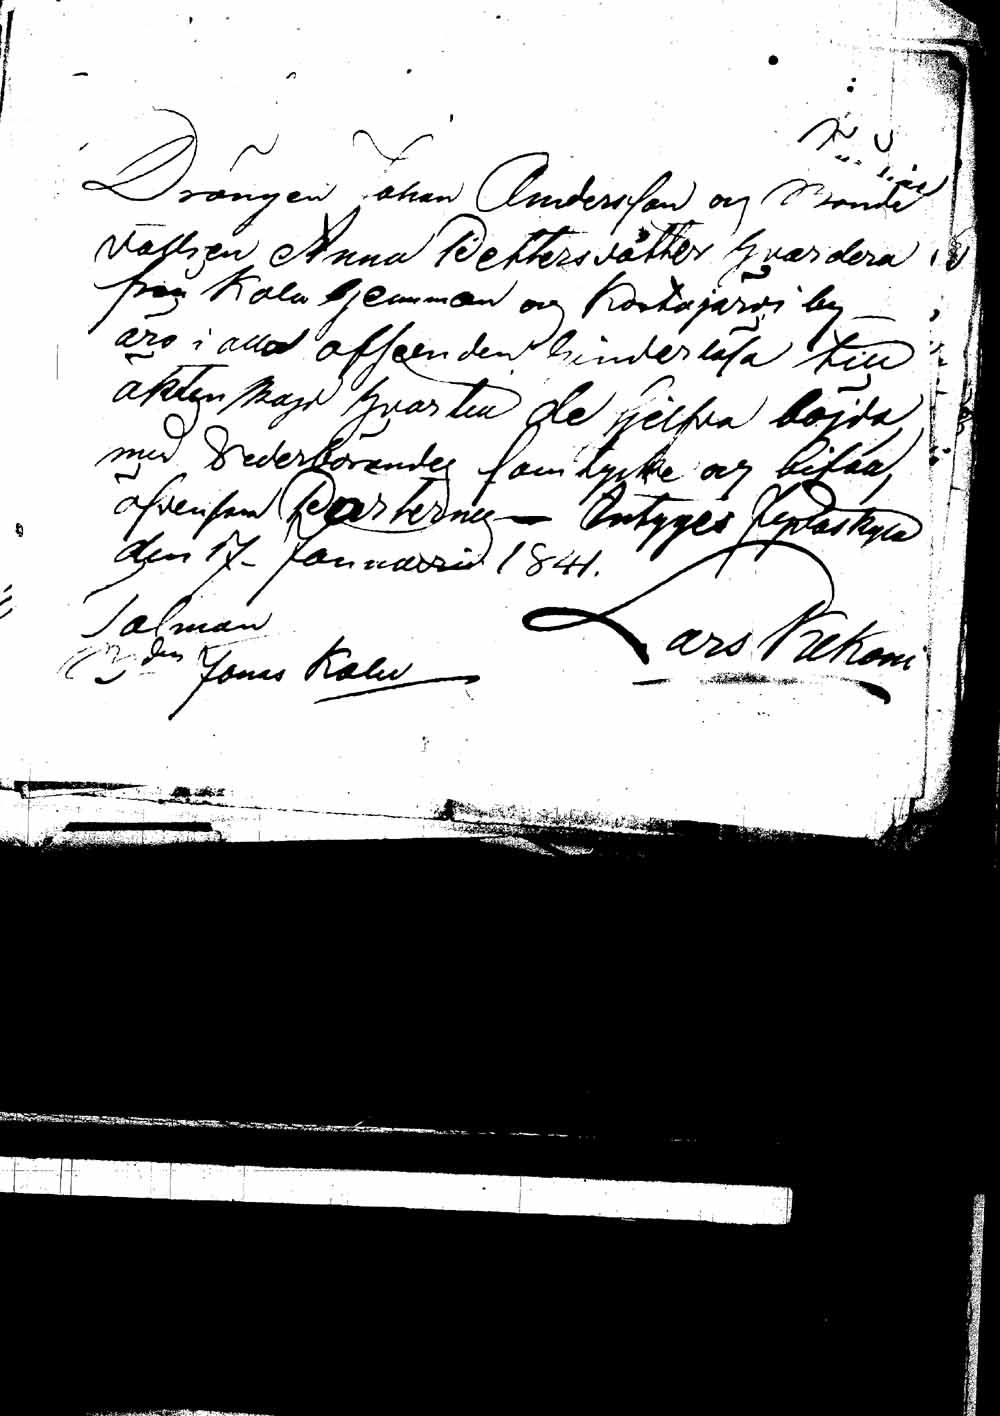 Drängen Johan Andersson og Bonde
dottren Anna Pettersdotter hvardera
från Kolu hemman og Kortejärvi by
äro i allo afseenden hinderlösa till
äktenskap hvartill de sjelfva böjda,
med Vederbörandes samtycke og bifall,
äfvensom Parternes — Intyges
den 17 Januarii 1841.
Talman
Jonas Kolu
Lars